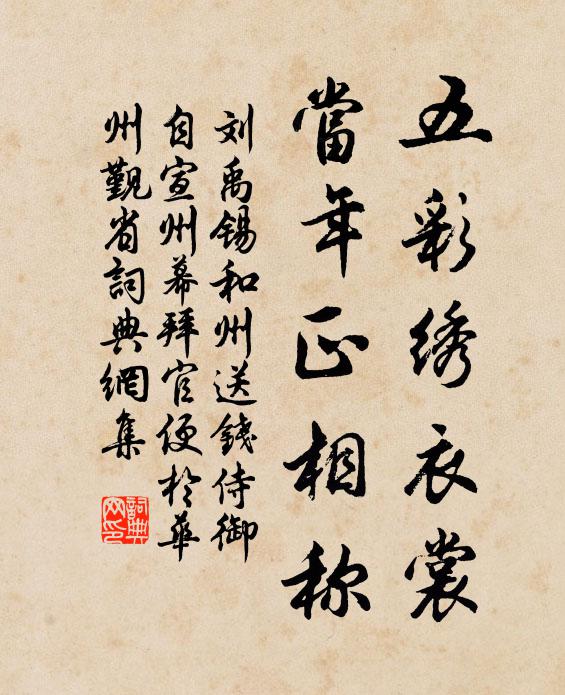 五彩绣衣裳
當年正相称
刘禹錫和州送錢侍御
自宣州幕拜官便於華
州觐省詞典網集
詞典网印